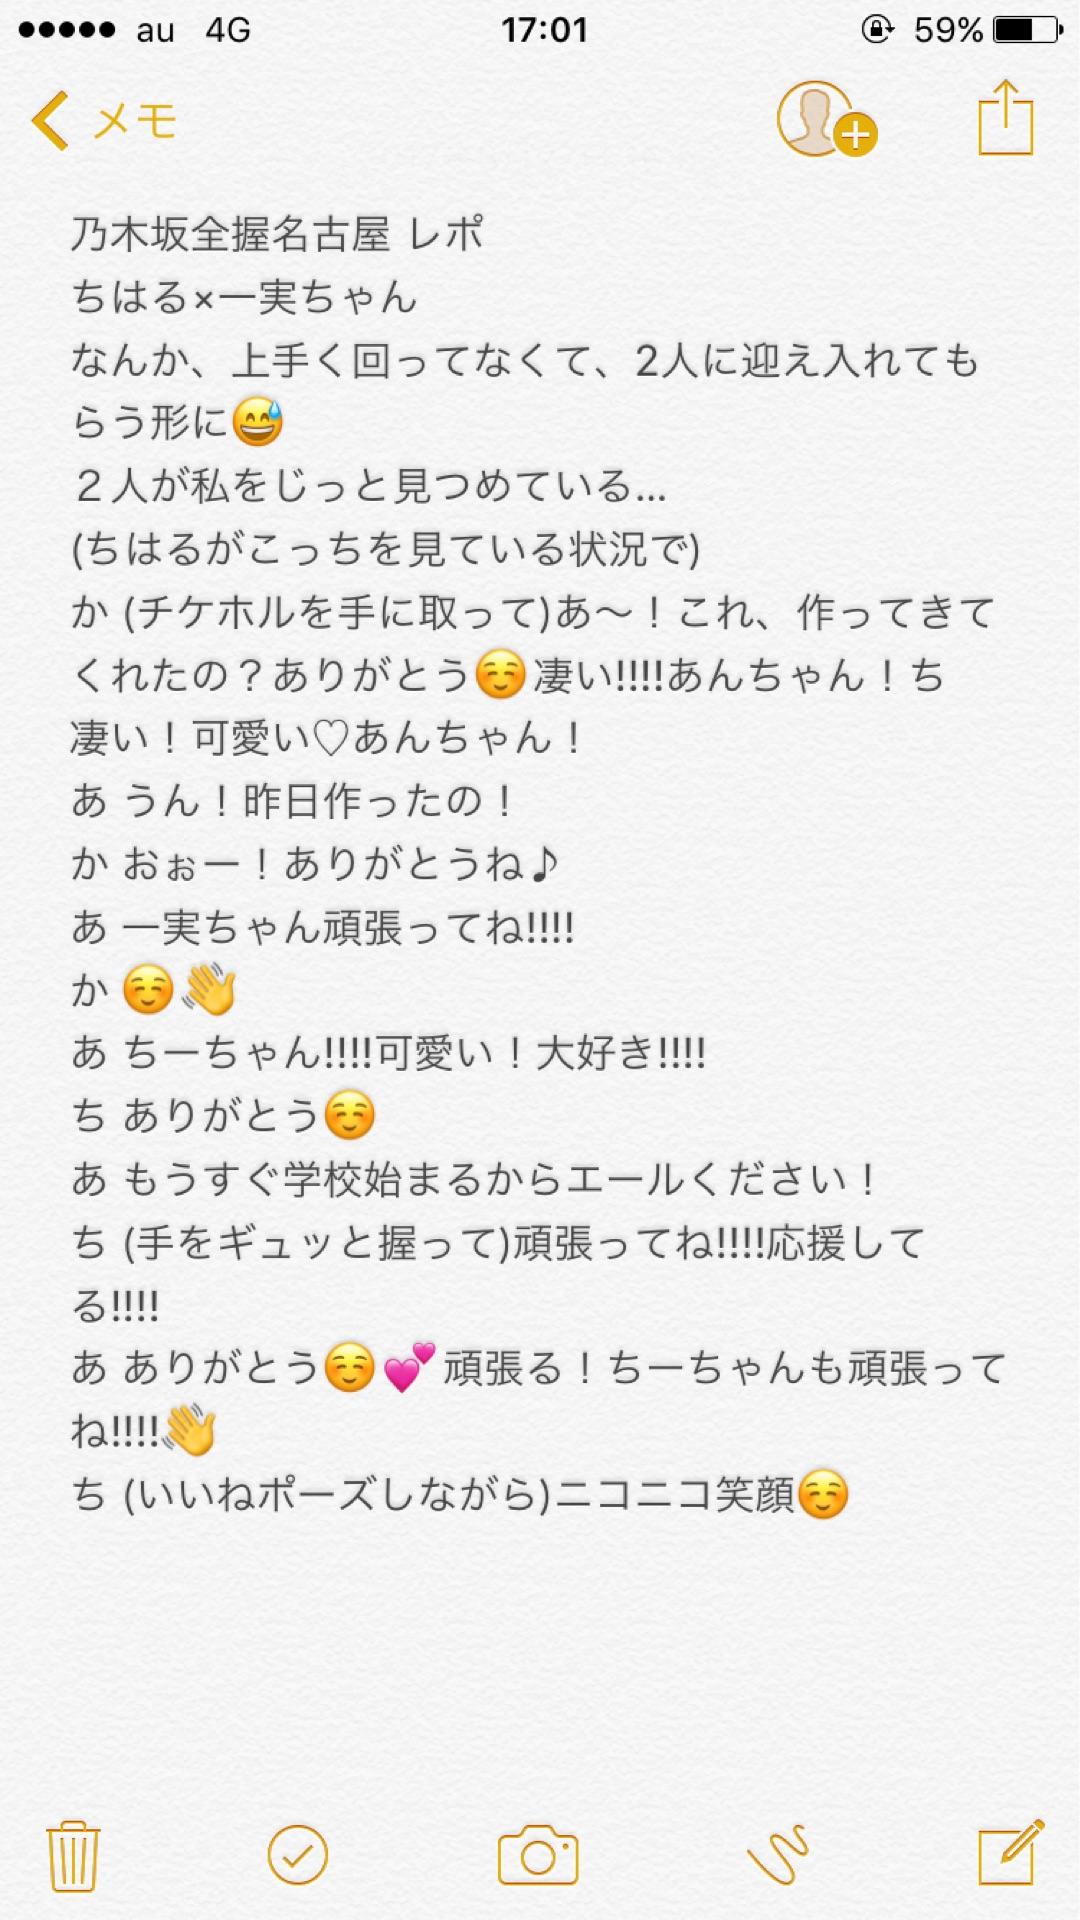 ●●●●● au 4G 17:01 59%
メモ
乃木坂全握名古屋 レポ
ちはる×一実ちゃん
なんか、上手く回ってなくて、2人に迎え入れても
らう形に😅
２人が私をじっと見つめている…
(ちはるがこっちを見ている状況で)
か (チケホルを手に取って)あ〜！これ、作ってきて
くれたの？ありがとう☺️凄い!!!!あんちゃん！ち
凄い！可愛い♡あんちゃん！
あ うん！昨日作ったの！
か おぉー！ありがとうね♪
あ 一実ちゃん頑張ってね!!!!
か ☺️👋
あ ちーちゃん!!!!可愛い！大好き!!!!
ち ありがとう☺️
あ もうすぐ学校始まるからエールください！
ち (手をギュッと握って)頑張ってね!!!!応援して
る!!!!
あ ありがとう☺️💕頑張る！ちーちゃんも頑張って
ね!!!!👋
ち (いいねポーズしながら)ニコニコ笑顔☺️